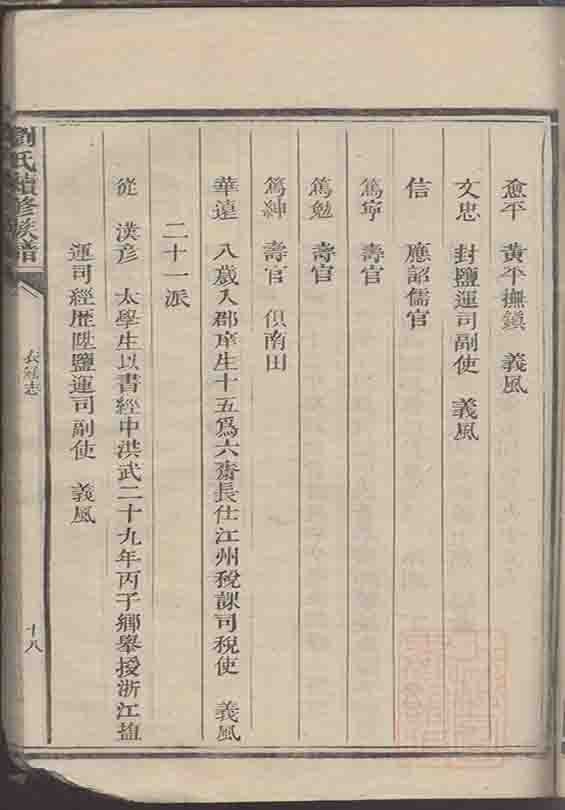 愈平　黃平撫鎮　義風
文忠　封鹽運司副使　義風
信　應詔儒官
篤寧　壽官
篤勉　壽官
篤紳　壽官　俱南田
華遠　八歲入郡庠生十五爲六齋長仕江州稅課司稅使　義風
二十一派
從　洪彥　太學生以書經中洪武二十九年丙子鄉舉授浙江鹽
運司經歷陞鹽運司副使　義風
劉氏續修族譜
志
十八